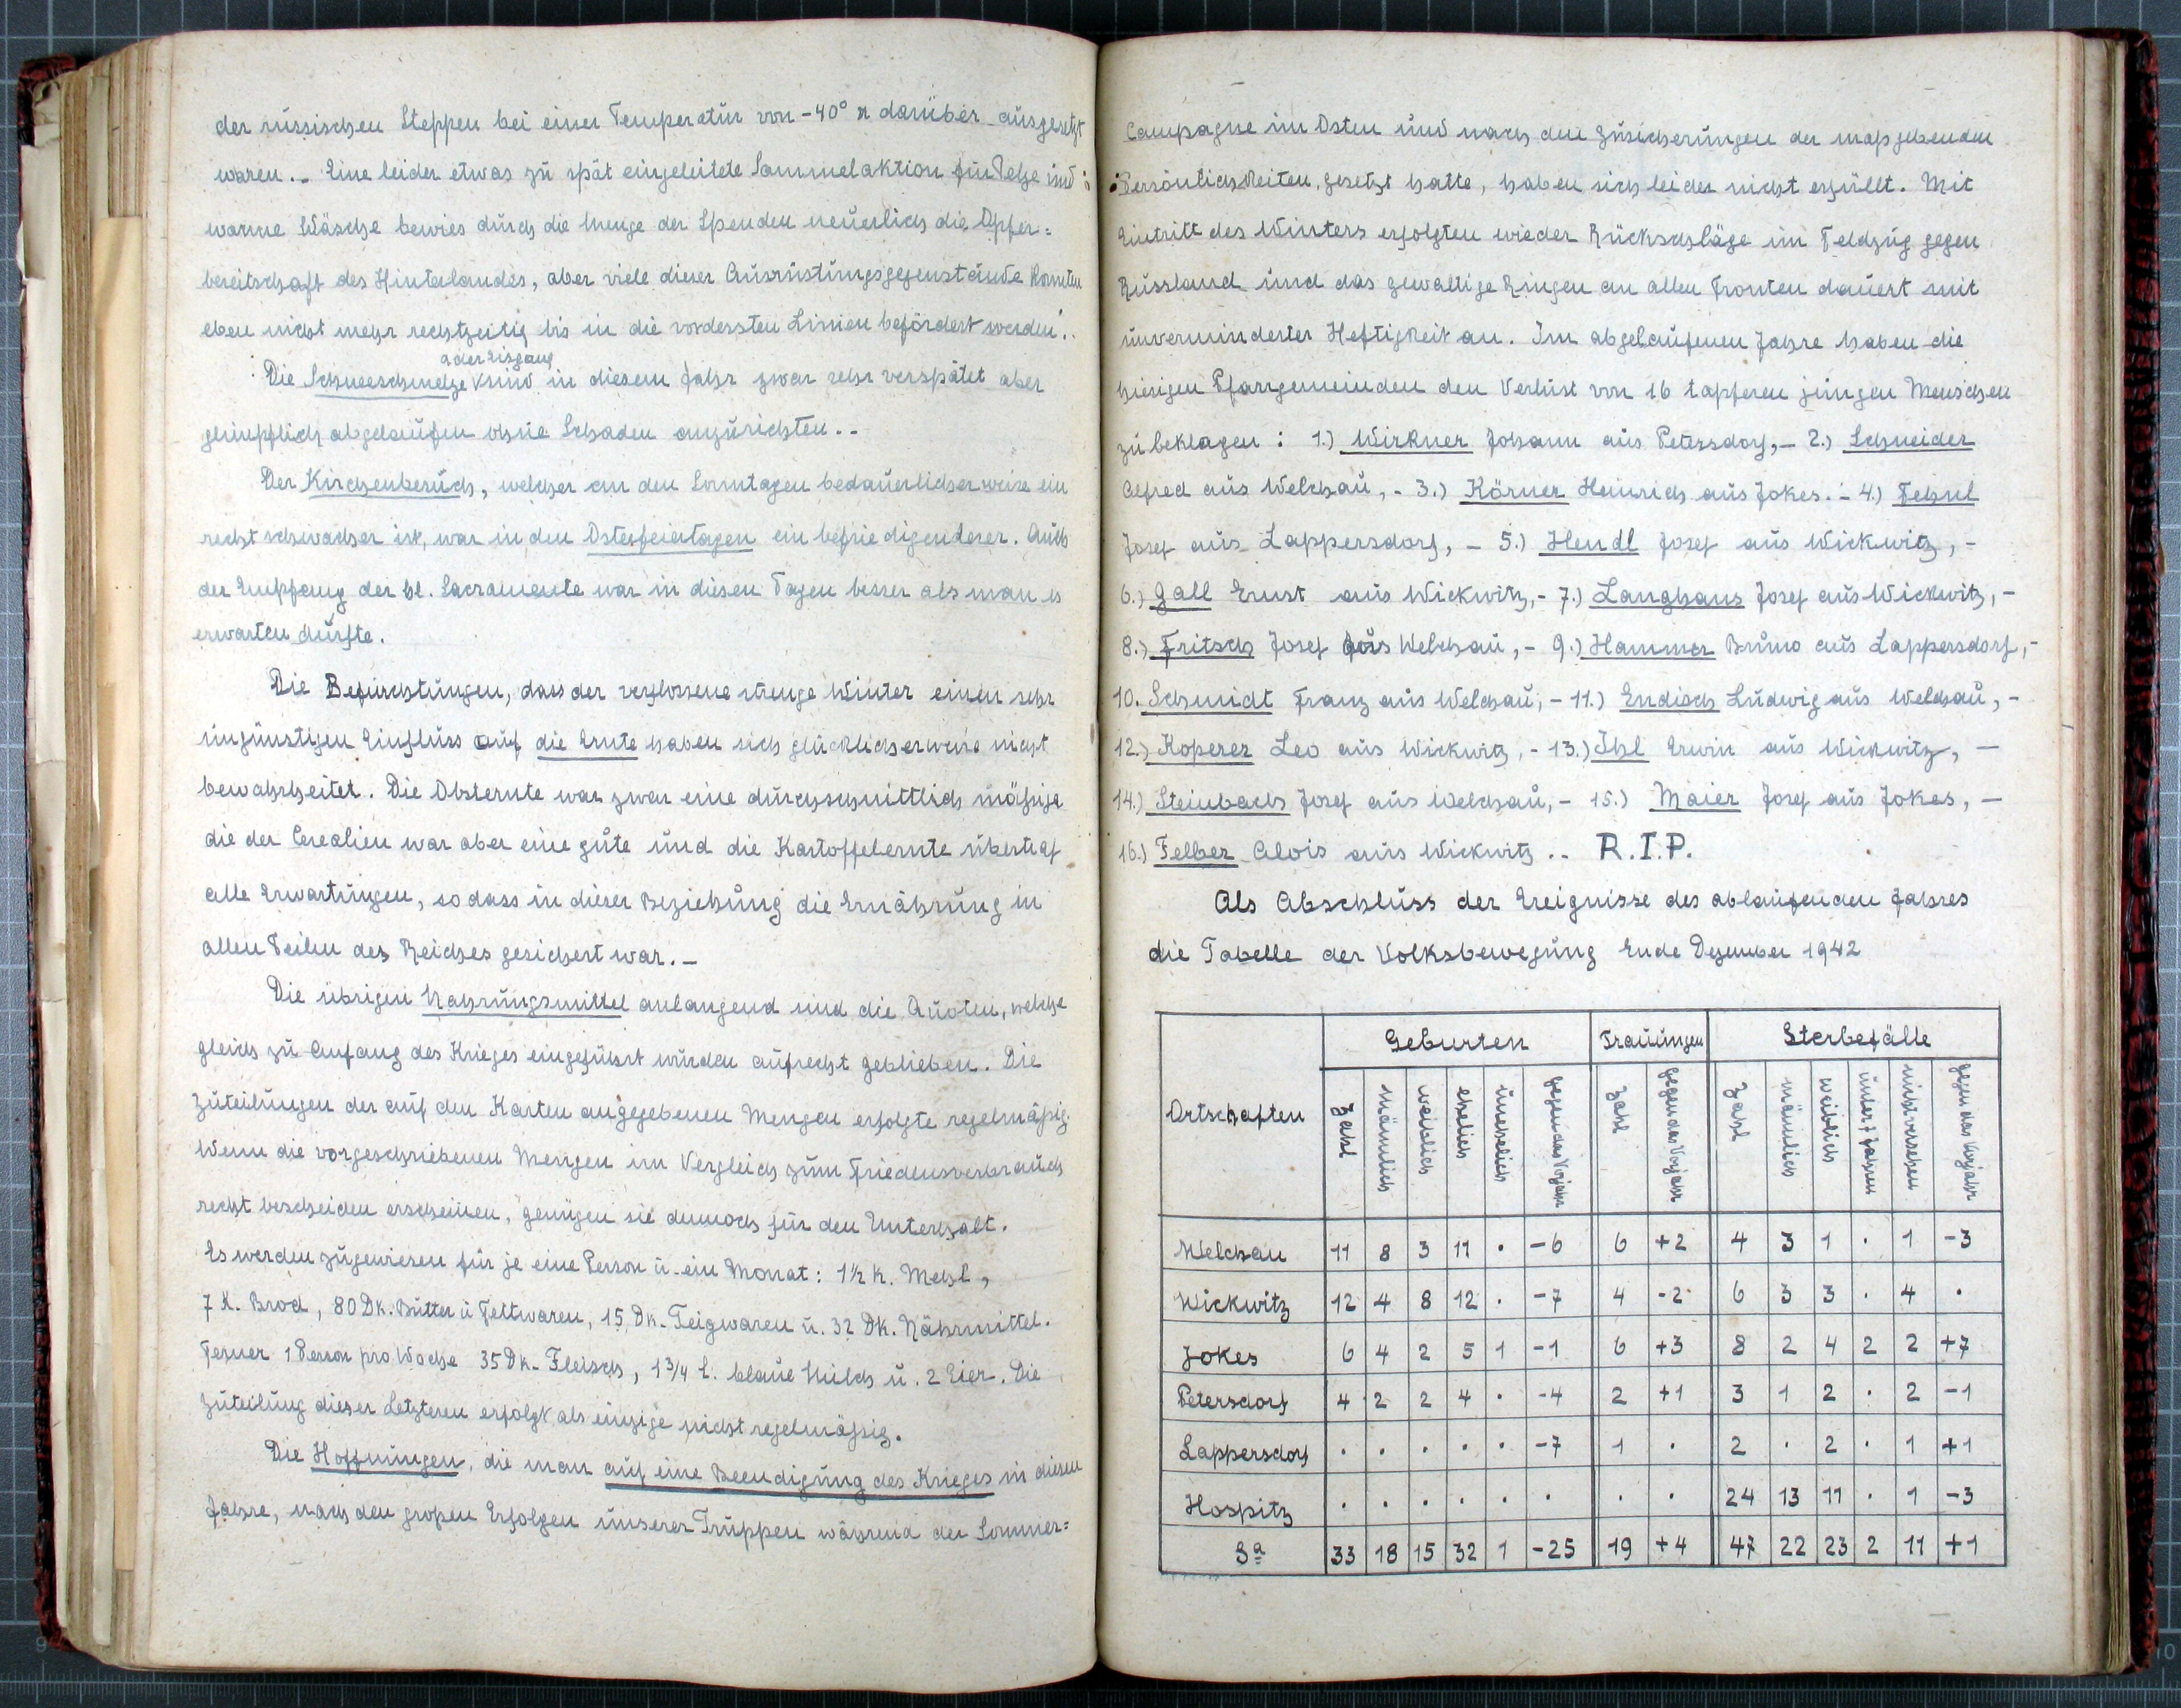 der russischen Steppen bei einer Temperatur von -40° u darüber ausgesetzt
waren.. Eine leider etwas zu spät eingeleitete Sammelaktion für Pelze und
warme Wäsche bewies durch die Menge der Spenden neuerlich die Opfer=
bereitschaft des Hinterlandes, aber viele dieser Ausrüstungsgegenstände konnten
eben nicht mehr rechtzeitig bis in die vordersten Linien befördert werden!.
u der Eisgang
Die Schneeschmelze sind in diesem Jahr zwar sehr verspätet aber
glimpflich abgelaufen ohne Schaden anzurichten..
Der Kirchenbesuch, welcher an den Sonntagen bedauerlicherweise ein
recht schwacher ist, war in den Osterfeiertagen ein befriedigenderer. Auch
der Empfang der hl. Sacramente war in diesen Tagen besser als man es
erwarten durfte.
Die Befürchtungen, dass der verflossene strenge Winter einen sehr
ungünstigen Einfluss auf die Ernte haben sich glücklicherweise nicht
bewahrheitet. Die Obsternte war zwar eine durchschnittlich mäßige
die der Cerealien war aber eine gute und die Kartoffelernte übertraf
alle Erwartungen, so dass in dieser Beziehung die Ernährung in
allen Teilen des Reiches gesichert war. –
Die übrigen Nahrungsmittel anlangend sind die Quoten, welche
gleich zu Anfang des Krieges eingeführt wurden aufrecht geblieben. Die
Zuteilungen der auf den Karten angegebenen Mengen erfolgte regelmäßig.
Wenn die vorgeschriebenen Mengen im Vergleich zum Friedensverbrauch
recht bescheiden erscheinen, genügen sie dennoch für den Unterhalt.
Es werden zugewiesen für je eine Person u. ein Monat: 1½ K. Mehl,
7 K. Brod, 80 Dk. Butter u Fettwaren, 15 Dk. Teigwaren u. 32 Dk. Nährmittel.
Ferner 1 Person pro Woche 35 Dk. Fleisch, 1 3/4 L. blaue Milch u. 2 Eier. Die
Zuteilung dieser Letzteren erfolgt als einzige nicht regelmäßig.
Die Hoffnungen, die man auf eine Beendigung des Krieges in diesem
Jahre, nach den großen Erfolgen unserer Truppen während der Sommer=
Campagne im Osten und nach den Zusicherungen der maßgebenden
Persönlichkeiten, gesetzt hatte, haben sich leider nicht erfüllt. Mit
Eintritt des Winters erfolgten wieder Rückschläge im Feldzug gegen
Russland und das gewaltige Ringen an allen Fronten dauert mit
unverminderter Heftigkeit an. Im abgelaufenen Jahre haben die
hiesigen Pfarrgemeinden den Verlust von 16 tapferen jungen Menschen
zu beklagen: 1.) Wirkner Johann aus Petersdorf, – 2.) Schneider
Alfred aus Welchau, – 3.) Körner Heinrich aus Jokes. – 4.) Fehnl
Josef aus Lappersdorf, – 5.) Hendl Josef aus Wickwitz, –
6.) Gall Ernst aus Wickwitz, – 7.) Langhans Josef aus Wickwitz, –
8.) Fritsch Josef aus Welchau, – 9.) Hammer Bruno aus Lappersdorf, –
10. Schmidt Franz aus Welchau, – 11.) Endisch Ludwig aus Welchau, –
12.) Koperer Leo aus Wickwitz, – 13.) Ihl Erwin aus Wickwitz, –
14.) Steinbach Josef aus Welchau, – 15.) Maier Josef aus Jokes, –
16.) Felber Alois aus Wickwitz .. R.I.P.
Als Abschluss der Ereignisse des ablaufenden Jahres
die Tabelle der Volksbewegung Ende Dezember 1942
Ortschaften Geburten Trauungen Sterbefälle
Zahl männlich weiblich ehelich unehelich gegen das Vorjahr Zahl gegen das Vorjahr Zahl männlich weiblich unter 7 Jahren nicht versehen gegen das Vorjahr
Welchau 11 8 3 11 . -6 6 +2 4 3 1 . 1 -3
Wickwitz 12 4 8 12 . -7 4 -2 6 3 3 . 4 .
Jokes 6 4 2 5 1 -1 6 +3 8 2 4 2 2 +7
Petersdorf 4 2 2 4 . -4 2 +1 3 1 2 . 2 -1
Lappersdorf . . . . . -7 1 . 2 . 2 . 1 +1
Hospitz . . . . . . . . 24 13 11 . 1 -3
Sa 33 18 15 32 1 -25 19 +4 47 22 23 2 11 +1
9
10